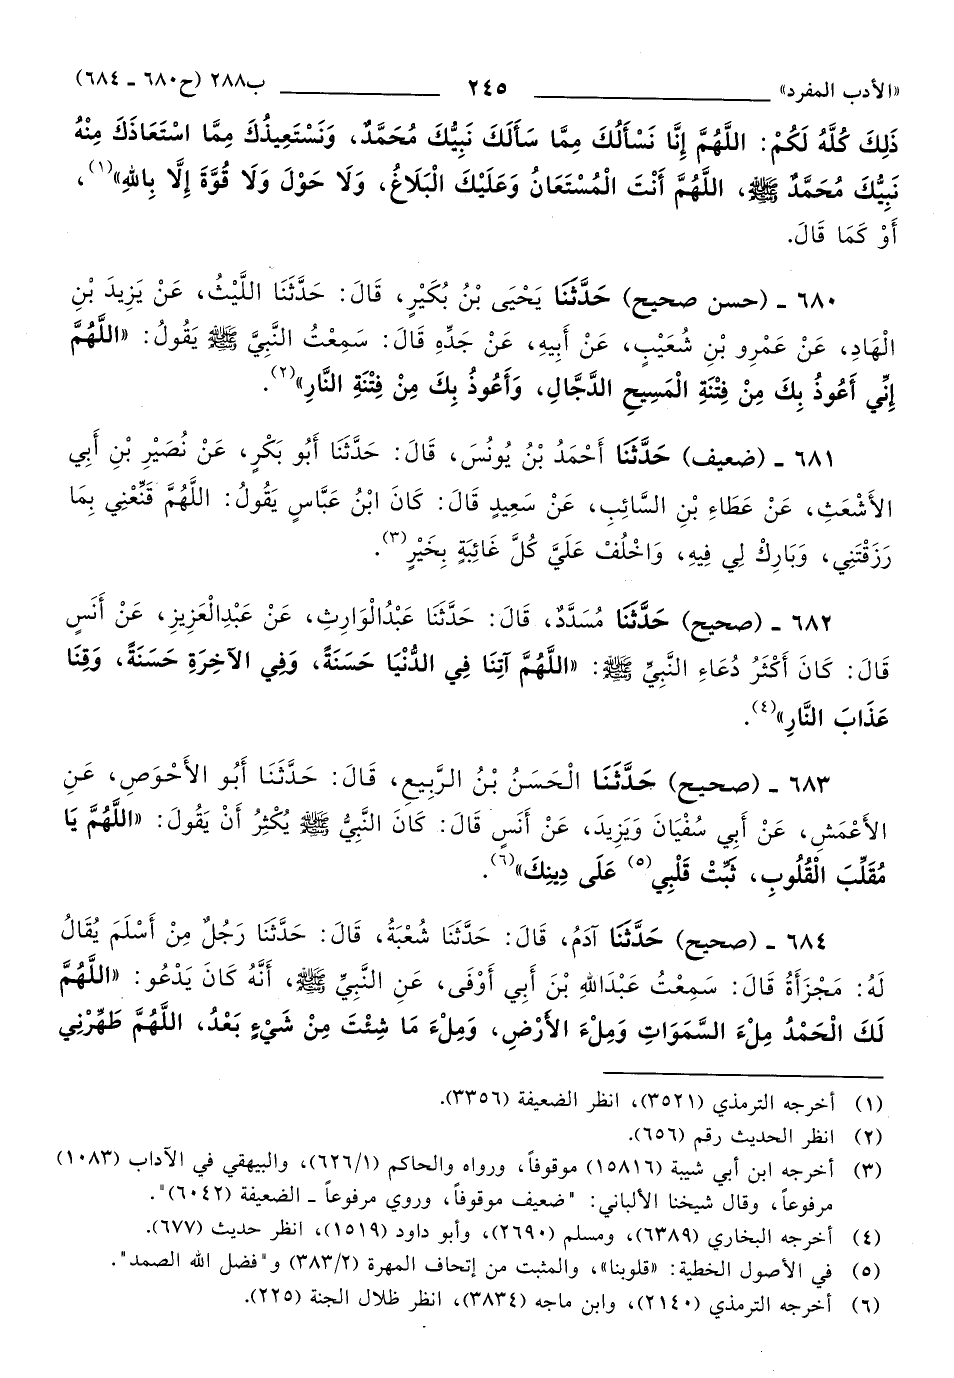 «الأدب المفرد» ٢٤٥ ب٢٨٨ (ح٦٨٠ ـ ٦٨٤)
ذَلِكَ كُلَّهُ لَكُمْ: اللَّهُمَّ إِنَّا نَسْأَلُكَ مِمَّا سَأَلَكَ نَبِيُّكَ مُحَمَّدٌ، وَنَسْتَعِيذُكَ مِمَّا اسْتَعَاذَكَ مِنْهُ
نَبِيُّكَ مُحَمَّدٌ ﷺ، اللَّهُمَّ أَنْتَ الْمُسْتَعَانُ وَعَلَيْكَ الْبَلَاغُ، وَلَا حَوْلَ وَلَا قُوَّةَ إِلَّا بِاللهِ»(١)،
أَوْ كَمَا قَالَ.
٦٨٠ ـ (حسن صحيح) حَدَّثَنَا يَحْيَى بْنُ بُكَيْرٍ، قَالَ: حَدَّثَنَا اللَّيْثُ، عَنْ يَزِيدَ بْنِ
الْهَادِ، عَنْ عَمْرِو بْنِ شُعَيْبٍ، عَنْ أَبِيهِ، عَنْ جَدِّهِ قَالَ: سَمِعْتُ النَّبِيَّ ﷺ يَقُولُ: «اللَّهُمَّ
إِنِّي أَعُوذُ بِكَ مِنْ فِتْنَةِ الْمَسِيحِ الدَّجَّالِ، وَأَعُوذُ بِكَ مِنْ فِتْنَةِ النَّارِ»(٢).
٦٨١ ـ (ضعيف) حَدَّثَنَا أَحْمَدُ بْنُ يُونُسَ، قَالَ: حَدَّثَنَا أَبُو بَكْرٍ، عَنْ نُصَيْرِ بْنِ أَبِي
الأَشْعَثِ، عَنْ عَطَاءِ بْنِ السَّائِبِ، عَنْ سَعِيدٍ قَالَ: كَانَ ابْنُ عَبَّاسٍ يَقُولُ: اللَّهُمَّ قَنِّعْنِي بِمَا
رَزَقْتَنِي، وَبَارِكْ لِي فِيهِ، وَاخْلُفْ عَلَيَّ كُلَّ غَائِبَةٍ بِخَيْرٍ(٣).
٦٨٢ ـ (صحيح) حَدَّثَنَا مُسَدَّدٌ، قَالَ: حَدَّثَنَا عَبْدُالْوَارِثِ، عَنْ عَبْدِالْعَزِيزِ، عَنْ أَنَسٍ
قَالَ: كَانَ أَكْثَرُ دُعَاءِ النَّبِيِّ ﷺ: «اللَّهُمَّ آتِنَا فِي الدُّنْيَا حَسَنَةً، وَفِي الآخِرَةِ حَسَنَةً، وَقِنَا
عَذَابَ النَّارِ»(٤).
٦٨٣ ـ (صحيح) حَدَّثَنَا الْحَسَنُ بْنُ الرَّبِيعِ، قَالَ: حَدَّثَنَا أَبُو الأَحْوَصِ، عَنِ
الأَعْمَشِ، عَنْ أَبِي سُفْيَانَ وَيَزِيدَ، عَنْ أَنَسٍ قَالَ: كَانَ النَّبِيُّ ﷺ يُكْثِرُ أَنْ يَقُولَ: «اللَّهُمَّ يَا
مُقَلِّبَ الْقُلُوبِ، ثَبِّتْ قَلْبِي(٥) عَلَى دِينِكَ»(٦).
٦٨٤ ـ (صحيح) حَدَّثَنَا آدَمُ، قَالَ: حَدَّثَنَا شُعْبَةُ، قَالَ: حَدَّثَنَا رَجُلٌ مِنْ أَسْلَمَ يُقَالُ
لَهُ: مَجْزَأَةُ قَالَ: سَمِعْتُ عَبْدَاللهِ بْنَ أَبِي أَوْفَى، عَنِ النَّبِيِّ ﷺ، أَنَّهُ كَانَ يَدْعُو: «اللَّهُمَّ
لَكَ الْحَمْدُ مِلْءَ السَّمَوَاتِ وَمِلْءَ الأَرْضِ، وَمِلْءَ مَا شِئْتَ مِنْ شَيْءٍ بَعْدُ، اللَّهُمَّ طَهِّرْنِي
(١) أخرجه الترمذي (٣٥٢١)، انظر الضعيفة (٣٣٥٦).
(٢) انظر الحديث رقم (٦٥٦).
(٣) أخرجه ابن أبي شيبة (١٥٨١٦) موقوفاً، ورواه والحاكم (٦٢٦/١)، والبيهقي في الآداب (١٠٨٣)
مرفوعاً، وقال شيخنا الألباني: "ضعيف موقوفاً، وروي مرفوعاً ـ الضعيفة (٦٠٤٢)".
(٤) أخرجه البخاري (٦٣٨٩)، ومسلم (٢٦٩٠)، وأبو داود (١٥١٩)، انظر حديث (٦٧٧).
(٥) في الأصول الخطية: «قلوبنا»، والمثبت من إتحاف المهرة (٣٨٣/٢) و"فضل الله الصمد".
(٦) أخرجه الترمذي (٢١٤٠)، وابن ماجه (٣٨٣٤)، انظر ظلال الجنة (٢٢٥).